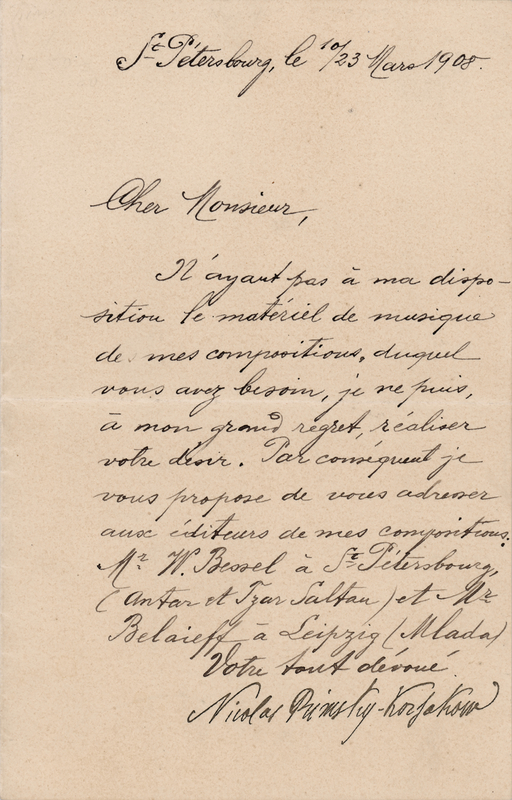 St Pétersbourg, le 10/23 Mars 1908.
Cher Monsieur,
N'ayant pas à ma dispo-
sition le matériel de musique
de mes compositions, duquel
vous avez besoin, je ne puis,
à mon grand regret, réaliser
votre désir. Par conséquent je
vous propose de vous adresser
aux éditeurs de mes compositions:
Mr W. Bessel à St Pétersbourg,
(Antar et Tzar Saltan) et Mr
Belaieff à Leipzig (Mlada)
Votre tout dévoué
Nicolas Rimsky-Korsakow